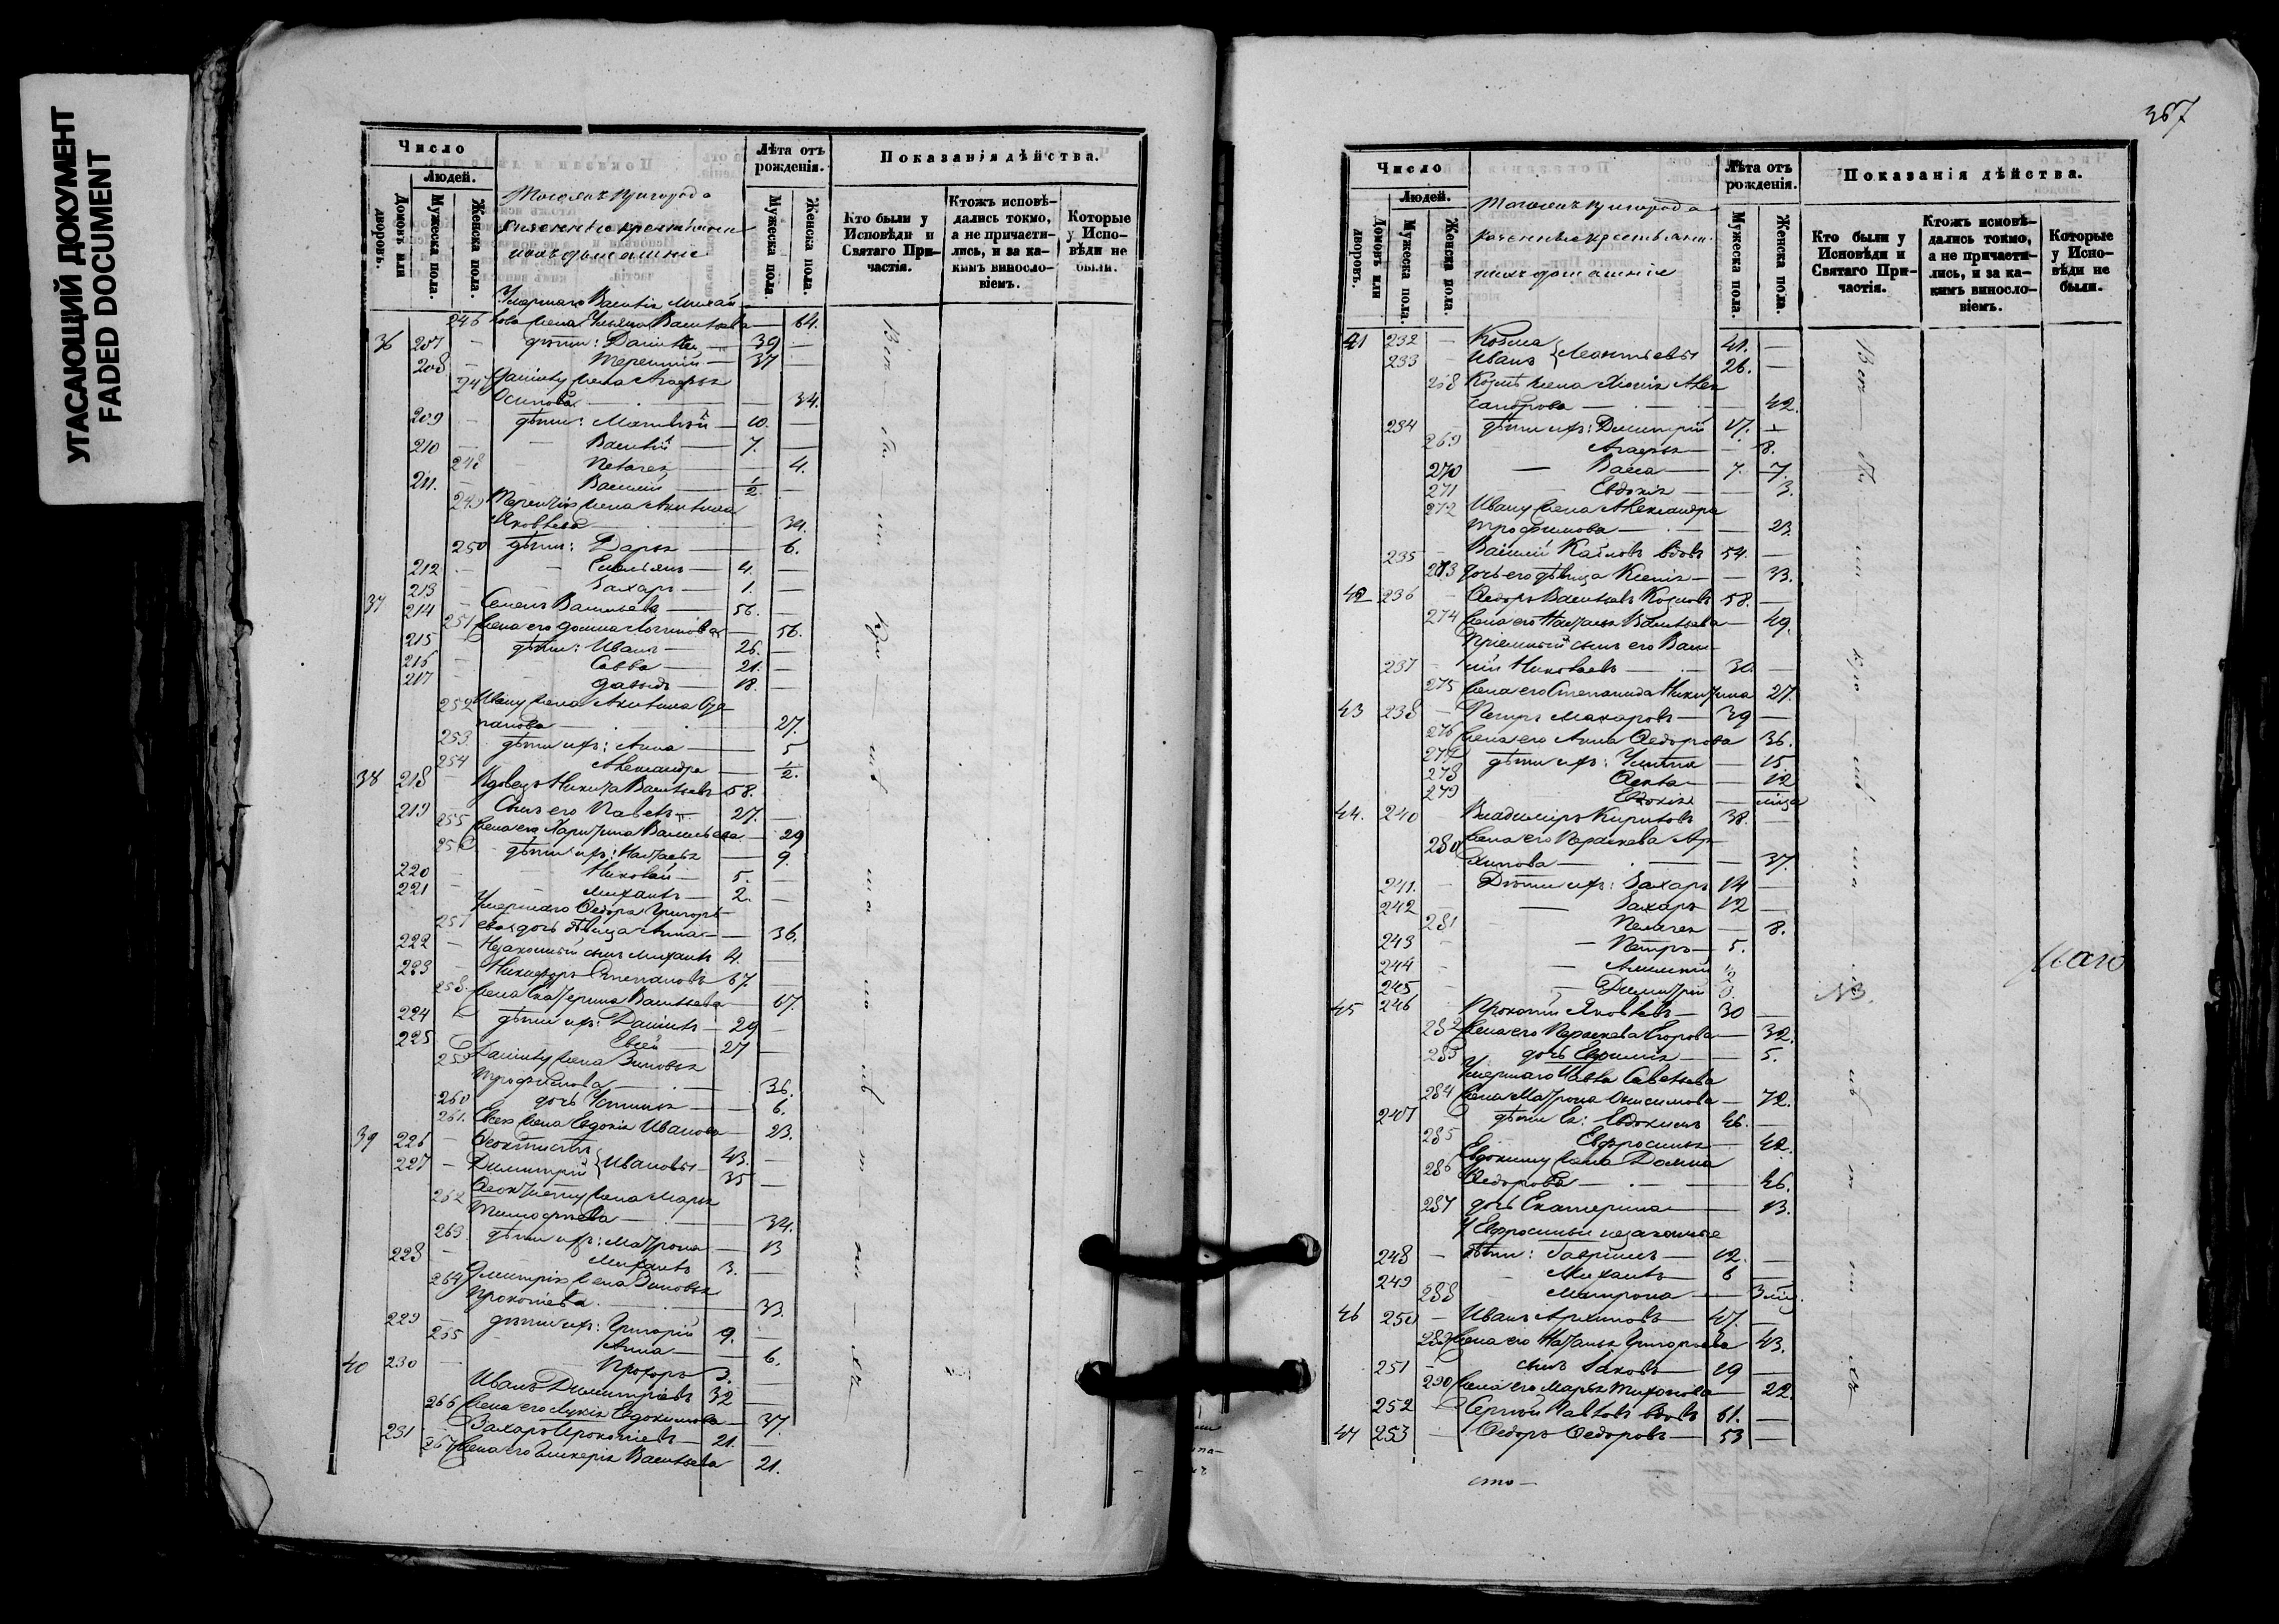 УГАСАЮЩИЙ ДОКУМЕНТ
FADED DOCUMENT
Число
Людей.
Домовъ или дворовъ.
Мужеска пола.
Женска пола.
Лѣта отъ рожденія.
Мужеска пола.
Женска пола.
Показанія дѣйства.
Кто были у Исповѣди и Святаго Причастія.
Ктожъ исповѣдались токмо, а не причастились, и за какимъ винословіемъ.
Которые у Исповѣди не были.
Умершаго Василія Михай
246 лова жена Ульяна Васильева — 64.
36 207 — дѣти: Даніилъ — 39 —
208 — Терентій — 37 —
247 Даніилу жена Агафья
Осипова — 34.
209 — дѣти: Матвѣй — 10. —
210 — Василій — 7. —
248 — Пелагея — 4.
211. — Василій — 1/2. —
249 Терентія жена Акилина
Яковлева — 34.
250 дѣти: Дарья — 6.
212 — Емельянъ — 4. —
213 — Захаръ — 1. —
37 214 — Семенъ Васильевъ — 56. —
251 жена его Домна Логинова — 56.
215 — дѣти: Иванъ — 26. —
216 — Савва — 21. —
217 — Давыдъ — 18. —
252 Ивану жена Акилина
27.
253 дѣти ихъ: Анна — 5
254 Александра — 1/2.
38 218 — Вдовецъ Никита Васильевъ 58. —
219 — Сынъ его Павелъ — 27. —
255 жена его Харитина Васильева — 29
256 — дѣти ихъ: Наталья — 9.
220 — Николай — 5. —
221 — Михаилъ — 2. —
Умершаго Федора Григорь
257 ева дочь дѣвица Анна — 36.
222 — Незаконный сынъ Михаилъ 4. —
223 — Никифоръ Степановъ 67. —
258. жена Екатерина Васильева — 67.
224 — дѣти ихъ: Даніилъ — 29 —
225 Евсей — 27 —
259 Даніилу жена Зиновья
Трофимова — 36.
260 дочь Устинья — 6.
261. Евсея жена Евдокія Иванова — 23.
39 226 — Феоктистъ
227 — Димитрій } Ивановы — 43. —
35 —
262 Феоктисту жена Марья
Тимофѣева — 34.
263. дѣти ихъ: Матрона — 13
228 — Михаилъ 3. —
264 Димитрія жена Зиновья
Прокопіева — 33.
229 — дѣти ихъ: Григорій 9. —
265 Анна — 6.
40 230 — Прохоръ 3. —
Иванъ Димитріевъ 32 —
266 жена его Лукія Евдокимова — 37.
231 — Захаръ Прокопіевъ — 21. —
267 жена его Гликерія Васильева 21.
367
Число
Людей.
Домовъ или дворовъ.
Мужеска пола.
Женска пола.
Лѣта отъ рожденія.
Мужеска пола.
Женска пола.
Показанія дѣйства.
Кто были у Исповѣди и Святаго Причастія.
Ктожъ исповѣдались токмо, а не причастились, и за какимъ винословіемъ.
Которые у Исповѣди не были.
41 232 — Козьма 41. —
233 — Иванъ } Леонтьевы 26. —
268 Козмѣ жена Хіонія Алек
сандрова — 42.
234 — дѣти ихъ: Димитрій 17. —
269 Агафья — 8.
270 — Васса — 7.
271 — Евдокія — 3.
272 Ивану жена Александра
Трофимова — 23.
235 — Василій вдовъ 54. —
273 дочь его дѣвица Ксенія — 33.
42 236 — Федоръ Васильевъ 58. —
274 жена его Наталья Васильева — 49.
Пріемный сынъ его Васи
237 — лій Николаевъ — 30. —
275 жена его Степанида Никитина 27.
43 238 — Петръ Макаровъ — 39 —
276 жена его Анна Федорова 36.
277 дѣти ихъ: — 15
278 Фекла — 12
279 Евдокія —
44. 240 — Владиміръ Кириловъ 38. —
280 жена его Параскева Ар
хипова — 37.
241. — Дѣти ихъ: Захаръ 14 —
242 — Захаръ 12 —
281 Пелагея — 8.
243 — Петръ — 5. —
244 —
245 — Димитрій
45 246 Прокопій Яковлевъ — 30 —
282 жена его Параскева Егорова — 32.
283 дочь Евфимія — 5.
Умершаго Савельева
284 жена Матрона Анисимова — 72.
247 — дѣти ея: Евдокимъ 46. —
285 Евфросинья — 42.
Евдокиму жена Домна
286 Федорова — 46.
287 дочь Екатерина — 13.
У Евфросиньи незаконные
248 — дѣти: Гавріилъ — 12. —
249 — Михаилъ — 6 —
288 Матрона —
46 250 — Иванъ Архиповъ — 47. —
289 жена его Наталья Григорьева 43.
251 — сынъ Яковъ — 19 —
290 жена его Марья Тихонова — 22.
252 — Сергѣй Павловъ вдовъ 61. —
47 253 — Федоръ Федоровъ — 53 —